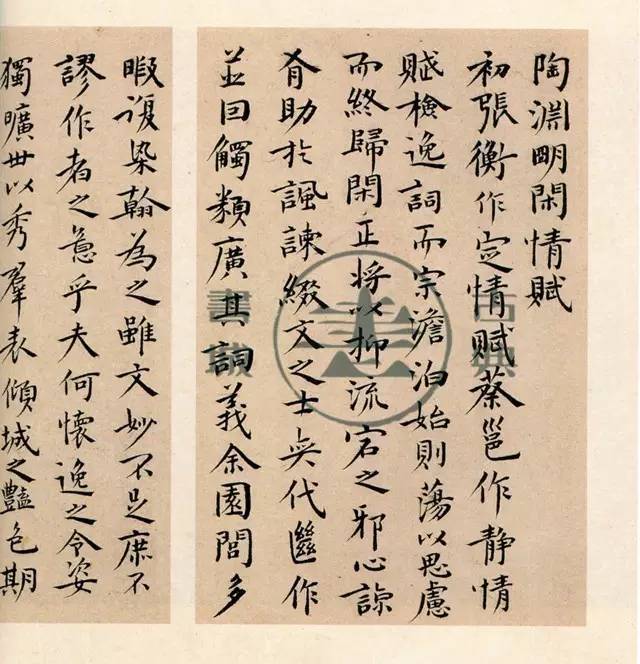 陶淵明閑情賦
初張衡作定情賦蔡邕作静情
賦檢逸詞而宗澹泊始則蕩以思慮
而終歸閑正将以抑流宕之邪心諒
有助於諷諫綴文之士奕代繼作
並回觸類廣其詞義余園閭多
暇復染翰為之雖文妙不足庶不
謬作者之意乎夫何懷逸之令姿
獨曠世以秀羣表傾城之豔色期